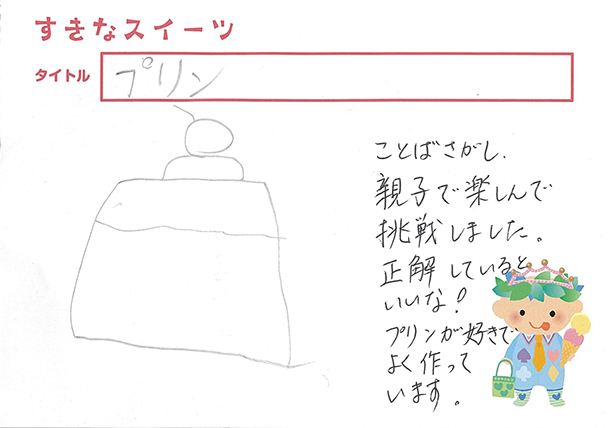 すきなスイーツ
タイトル
プリン
ことばさがし、
親子で楽しんで
挑戦しました。
正解していると
いいな!
プリンが好きで
よく作って
います。